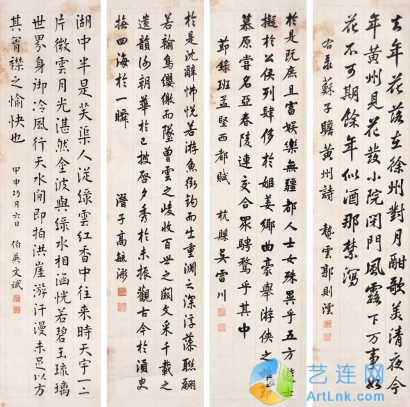 去年花落在徐州對月酣歌美清夜今
年黃州見花發小院閉門風露下萬事如
花不可期餘年似酒那禁瀉
蘇子瞻黃州詩 蟄雲郭則澐
於是既庶且富娛樂無疆都人士女殊異乎五方遊士
擬於公侯列肆侈於姬姜鄉曲豪舉游俠之雄節
慕原嘗名亞春陵連交合眾騁騖乎其中
節錄班孟堅西都賦 杭縣吳雷川
於是沈辭怫悅若游魚銜鉤而出重淵之深浮藻聯翩
若翰鳥纓繳而墜曾雲之峻收百世之闕文采千載之
遺韻謝朝華於已披啟夕秀於未振觀古今於須臾
撫四海於一瞬 潛子高毓浵
湖中半是芙渠人從綠雲紅香中往來時天宇一二
片微雲月光湛然金波與綠水相涵恍若碧玉琉璃
世界身御冷風行天水間即拍洪崖游汗漫未足以方
其胷襟之愉快也 甲申 月六日 伯英文斌
艺连网